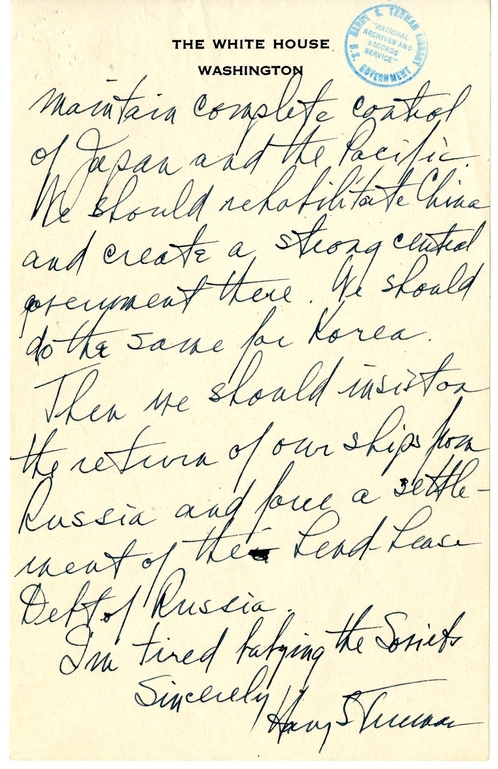 THE WHITE HOUSE
WASHINGTON
U.S. HARRY S. TRUMAN LIBRARY GOVERNMENT
"NATIONAL
ARCHIVES AND
RECORDS
SERVICE"
maintain complete control
of Japan and the Pacific.
We should rehabilitate China
and create a strong central
government there. We should
do the same for Korea.
Then we should insist on
the return of our ships from
Russia and force a settle-
ment of the Lend-Lease
Debt of Russia.
I'm tired babying the Soviets
Sincerely
Harry S Truman